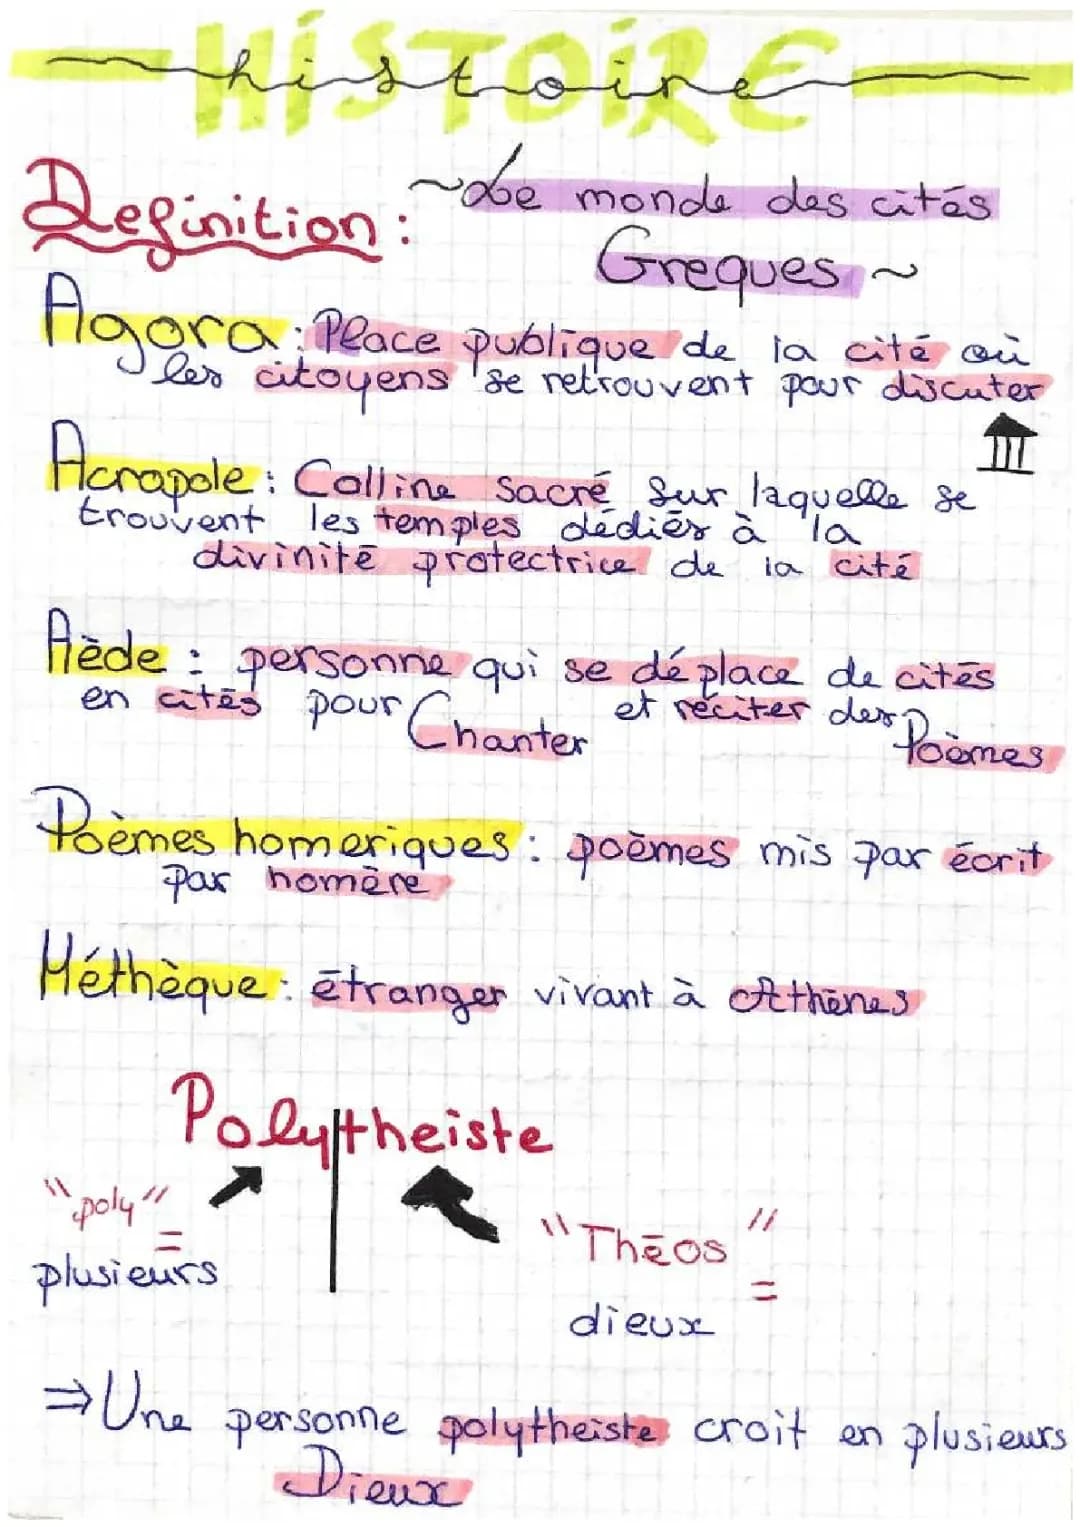 HiSTOiRE
histoire
Definition :
~Le monde des cités
Greques ~
Agora : Place publique de la cité où
les citoyens se retrouvent pour discuter
Acropole : Colline sacré sur laquelle se
trouvent les temples dédiés à la
divinité protectrice de la cité
Aède : personne qui se déplace de cités
en cités pour Chanter et réciter des Poèmes
Poèmes homeriques : poèmes mis par écrit
par homère
Méthèque : étranger vivant à Athènes
Polytheiste
"poly"
=
plusieurs
"Théos"
=
dieux
⇒ Une personne polytheiste croit en plusieurs
Dieux